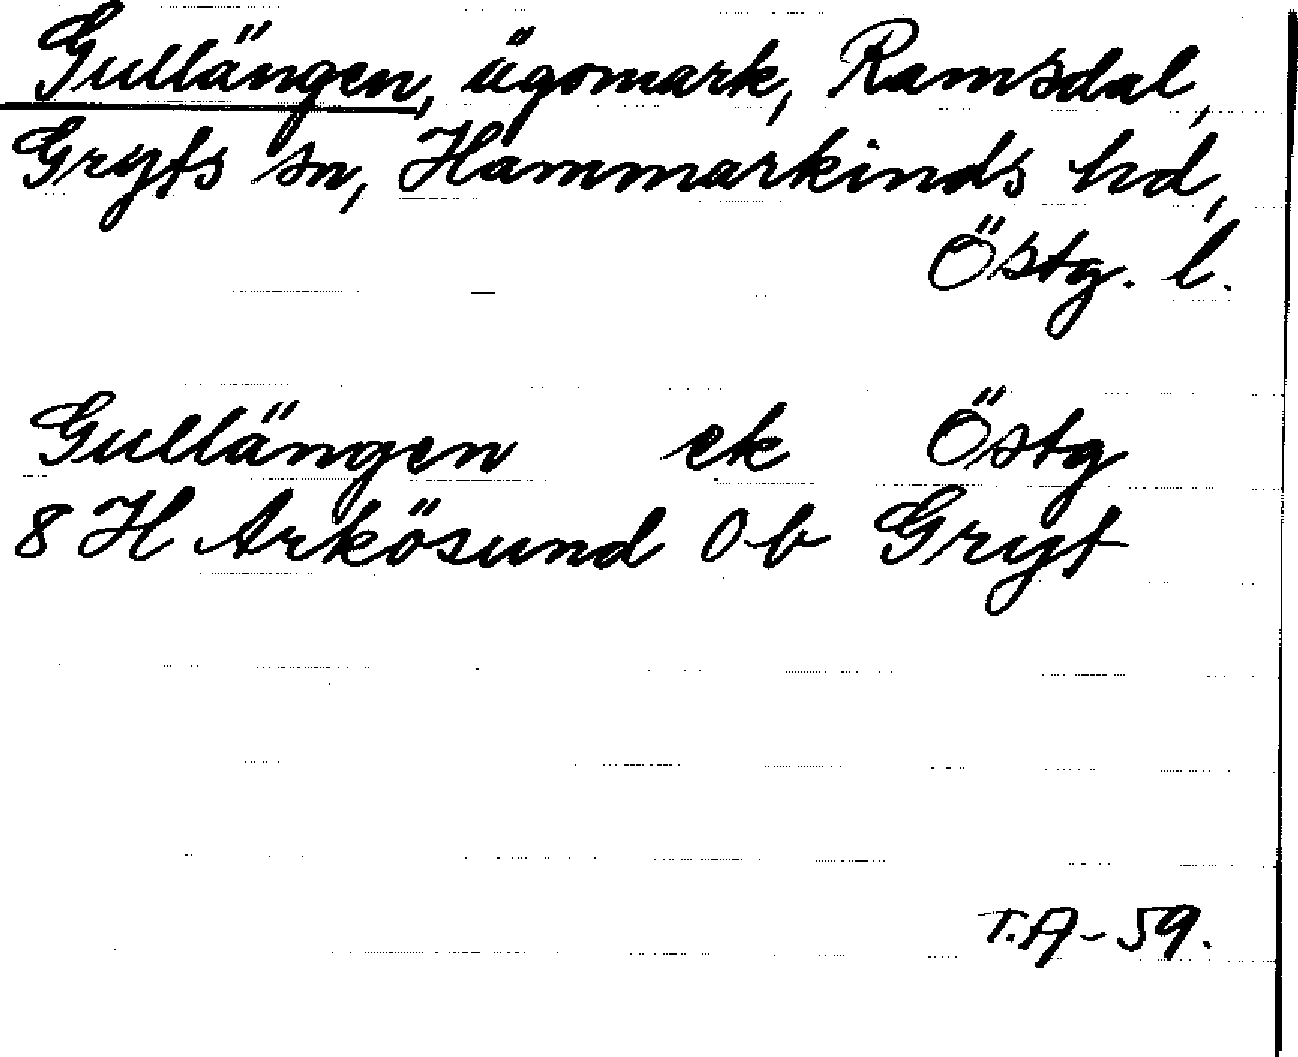 Gullängen, ägomark, Ramsdal,
Gryts sn, Hammarkinds hd,
Östg. l.
Gullängen ek Östg
8 H Arkösund 0 b Gryt
T.A-59.